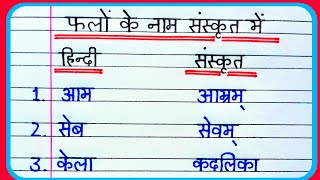 फलों के नाम संस्कृत में
हिन्दी संस्कृत
1. आम आम्रम्
2. सेब सेवम्
3. केला कदलिका